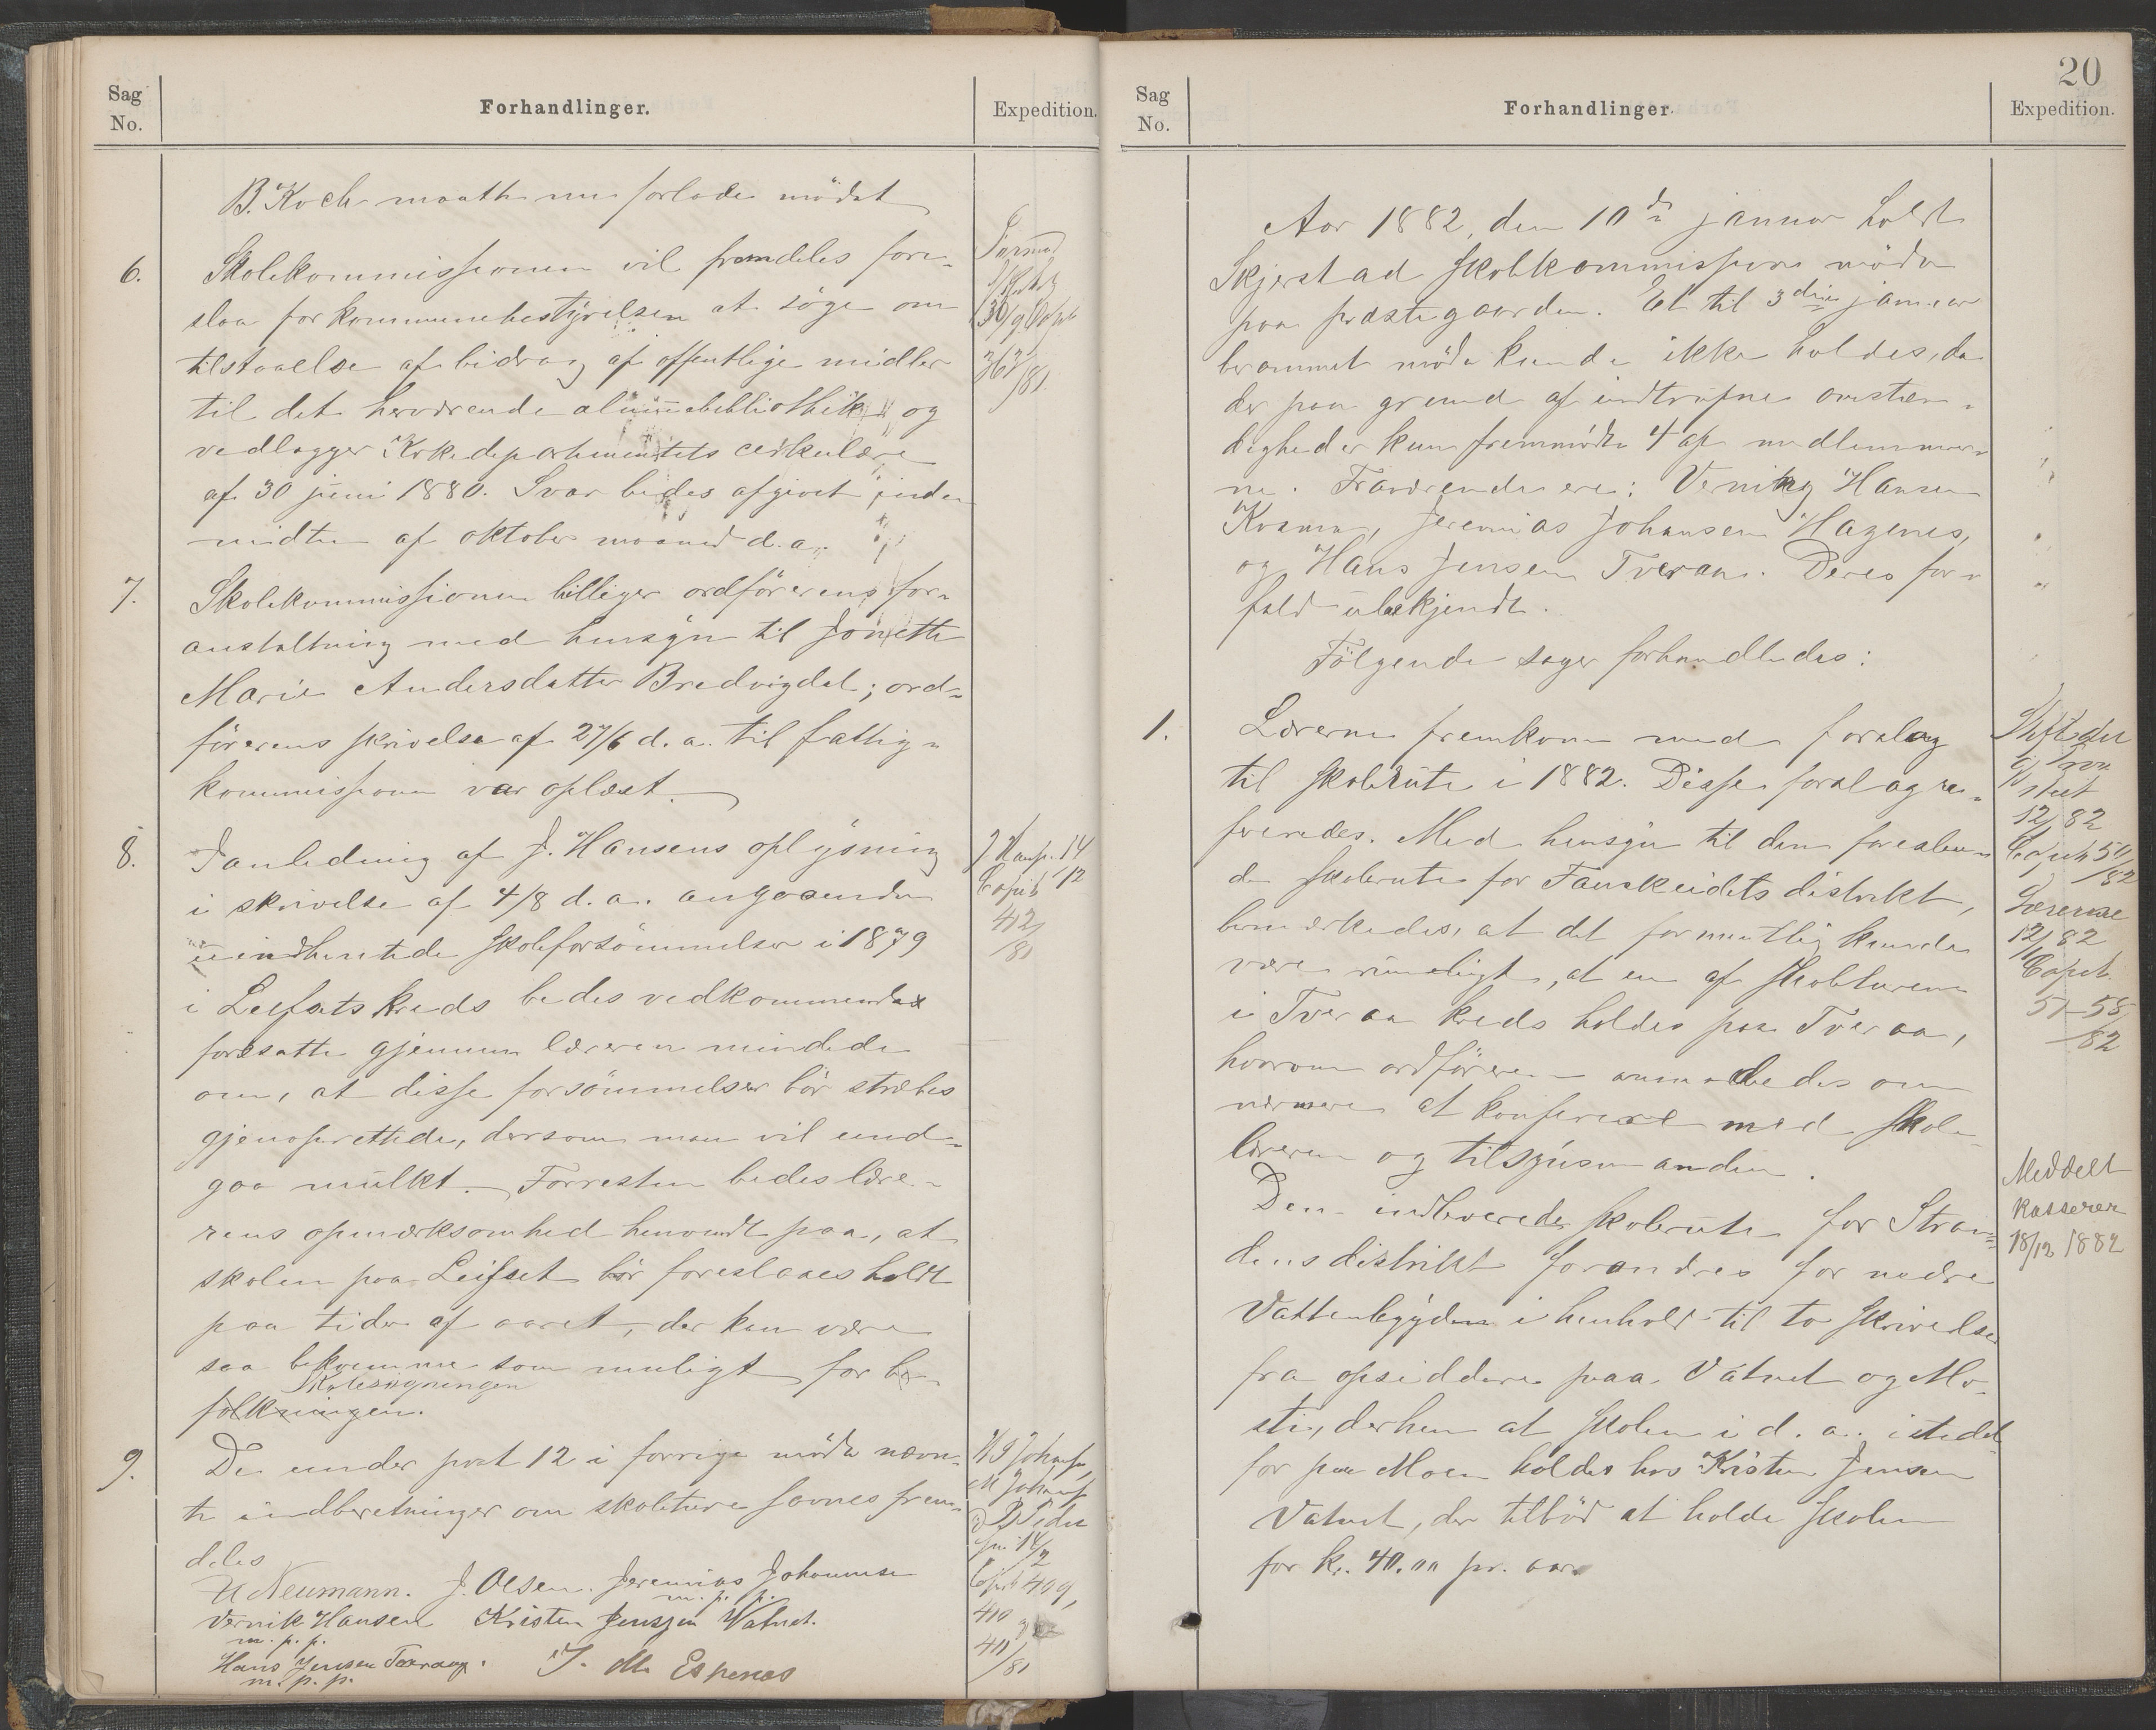 Sag
No.
Forhandlinger.
Expedition.
B. Koch maatte nu forlade mödet
6.
Skolekommissionen vil fremdeles fore-
slaa for kommunebestyrelsen at söge om
tilstaaelse af bidrag af offentlige midler
til det herværende almuebibliothek og
vedlægger Kirkedepartementets cirkulære
af 30 juni 1880. Svar bedes afgivet inden
midten af oktober maaned d. a.
Formd
30/9 Copi
362/81
7.
Skolekommissionen billiger ordförerens for-
anstaltning med hensyn til Jonette
Marie Andersdatter Bredvigdal; ord-
förerens skrivelse af 27/6 d. a. til fattig-
kommissionen var oplæst.
8.
I anledning af J. Hansens oplysning
i skrivelse af 4/8 d. a. angaaende
uindhentede skoleforsömmelser i 1879
i Leifsets kreds bedes vedkommende
foresatte gjennem læreren mindede
om, at disse forsömmelser bör stræbes
gjenoprettede, dersom man vil und-
gaa mulkt. Forresten bedes lære-
rens opmærksomhed henvendt paa, at
skolen paa Leifset bör foreslaaes holdt
paa tider af aaret, der kan være
saa bekvemme som muligt for be-
Skolesögningen
folkningen.
J Hans. 14
Copib 12
412
/81
9.
De under post 12 i forrige möde nævn-
te indberetninger om skoleture savnes frem-
deles
U Neumann. J. Olsen. Jeremias Johannsen
m. p. p.
Vernik Hansen Kristen Jenssen Vatnet.
m. p. p.
Hans Jensen Tveraa.
m. p. p.
J. M. Espenes
M Johans
Copib 409,
410
411
/81
20
Sag
No.
Forhandlinger.
Expedition.
Aar 1882, den 10de januar holdt
Skjerstad skolekommission möde
paa præstegaarden. Et til 3die januar
berammet möde kunde ikke holdes, da
der paa grund af indtrufne omstæn-
digheder kun fremmödte 4 af medlemmer-
ne. Fraværende ere: Vernik Hansen
Kvænn, Jeremias Johansen Hagenes,
og Hans Jensen Tveraa. Deres for-
fald ubekjendt.
Fölgende sager forhandledes:
1.
Lærerne fremkom med forslag
til skolerute i 1882. Disse forslag re-
fereredes. Med hensyn til den foreslaae-
de skolerute for Fauskeidets distrikt,
bemærkedes, at det formentlig kunde
være rimeligt, at en af skoleturene
i Tveraa kreds holdes paa Tveraa,
hvorom ordföreren anmodedes om
nærmere at konferere med skole-
læreren og tilsynsmanden.
Den indleverede skolerute for Stran-
dens distrikt forandres for nedre
Vattenbygden i henhold til to skrivelser
fra opsiddere paa Vatnet og Mo-
sti, derhen at skolen i d. a. istedet
for paa Moen holdes hos Kristen Jensen
Vatnet, der tilböd at holde skolen
for kr. 40.00 pr. aar.
12/82
Copib 50
/82
Lærerne
12/82
Copib
51-58
/82
Meddelt
kasserer
18/12 1882